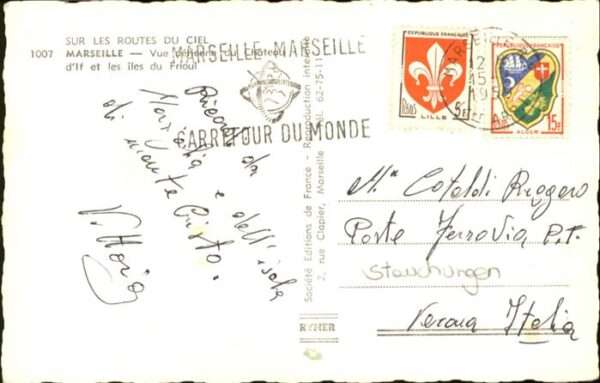 SUR LES ROUTES DU CIEL
1007 MARSEILLE — Vue aérienne du Château
d'If et les îles du Frioul
MARSEILLE MARSEILLE
CARREFOUR DU MONDE
RÉPUBLIQUE FRANÇAISE
5F
LILLE
RÉPUBLIQUE FRANÇAISE
15F
ALGER
12
15
195
Ricordo da
Marsiglia e dell'isola
di monte Cristo.
Vittorio
Société Editions de France - Reproduction interdite
7, rue Clapier, Marseille 62-75-11
Cataldi Ruggero
Poste Ferrovia P.T.
Stauchungen
Verona Italia